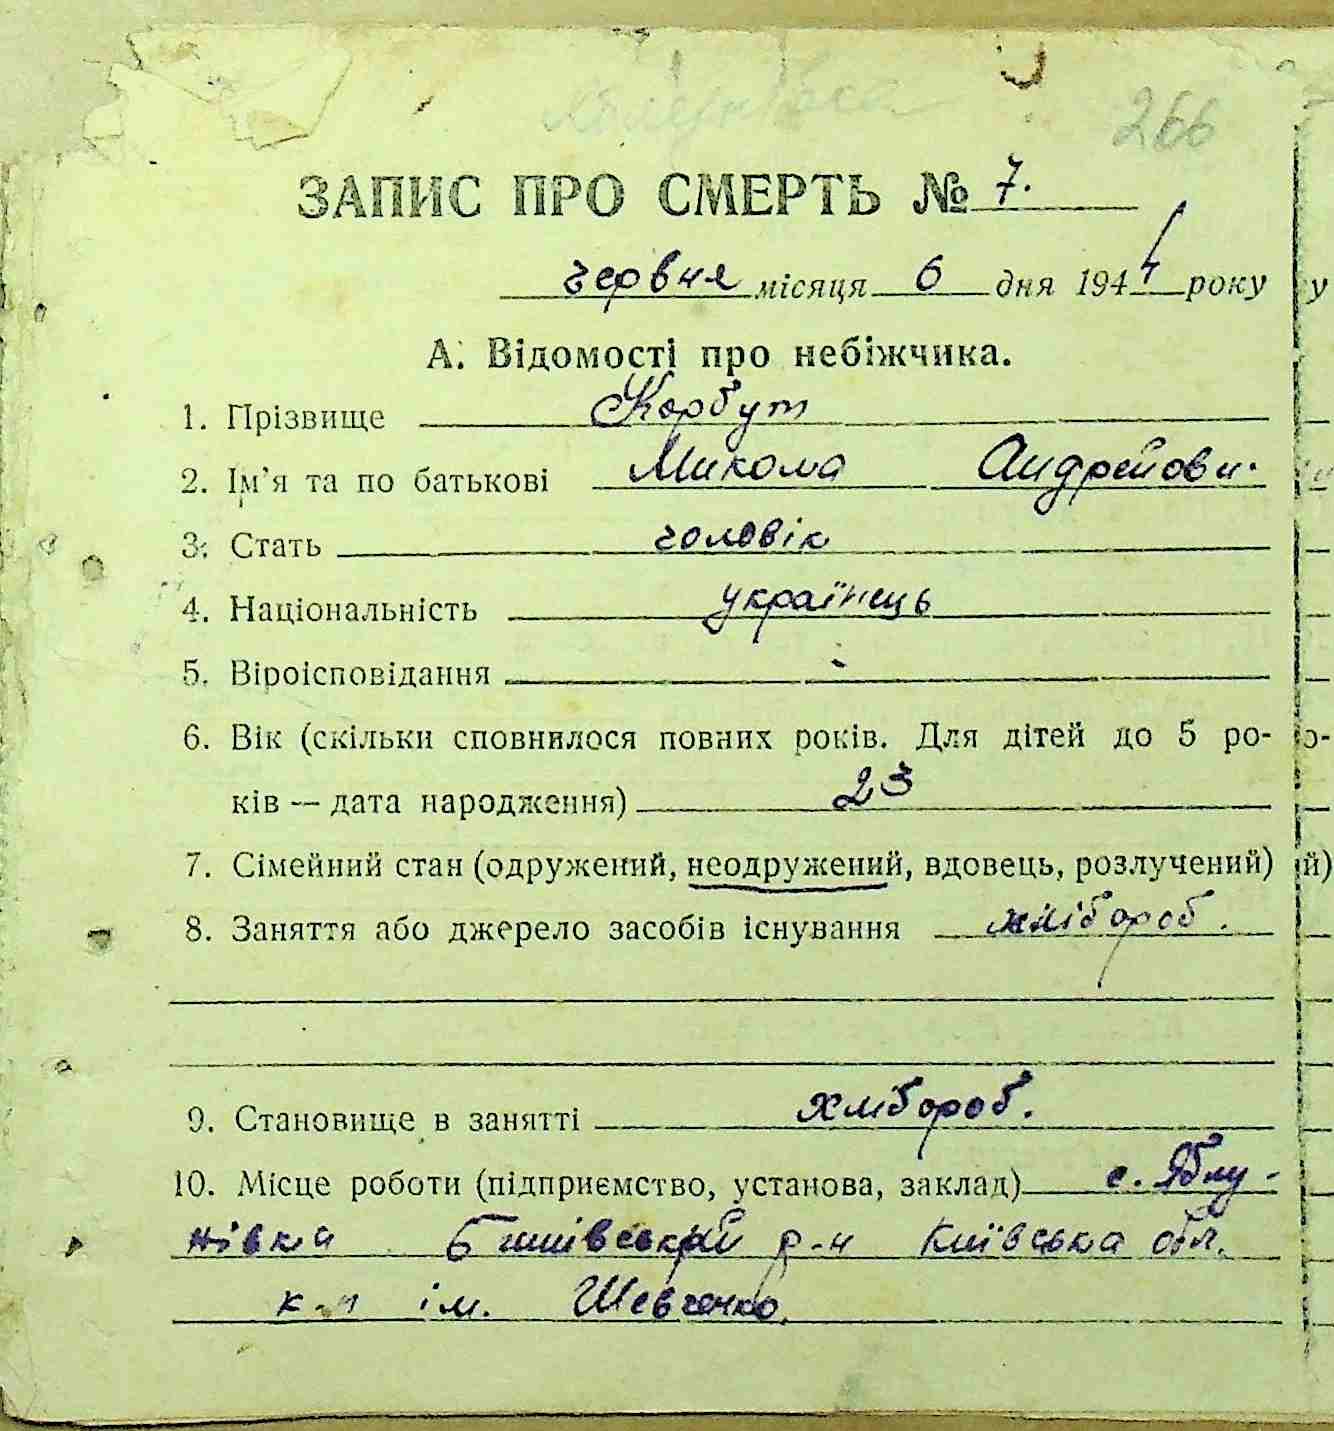 266
ЗАПИС ПРО СМЕРТЬ № 7.
червня місяця 6 дня 1944 року
А. Відомості про небіжчика.
1. Прізвище Корбут
2. Ім'я та по батькові Микола Андрейови.
3. Стать чоловік
4. Національність українець
5. Віроісповідання -
6. Вік (скільки сповнилося повних років. Для дітей до 5 ро-
ків — дата народження) 23
7. Сімейний стан (одружений, неодружений, вдовець, розлучений)
8. Заняття або джерело засобів існування хлібороб.
9. Становище в занятті хлібороб.
10. Місце роботи (підприємство, установа, заклад) с. Яблу-
нівка Бишівський р-н Київська обл.
к-п ім. Шевченко.